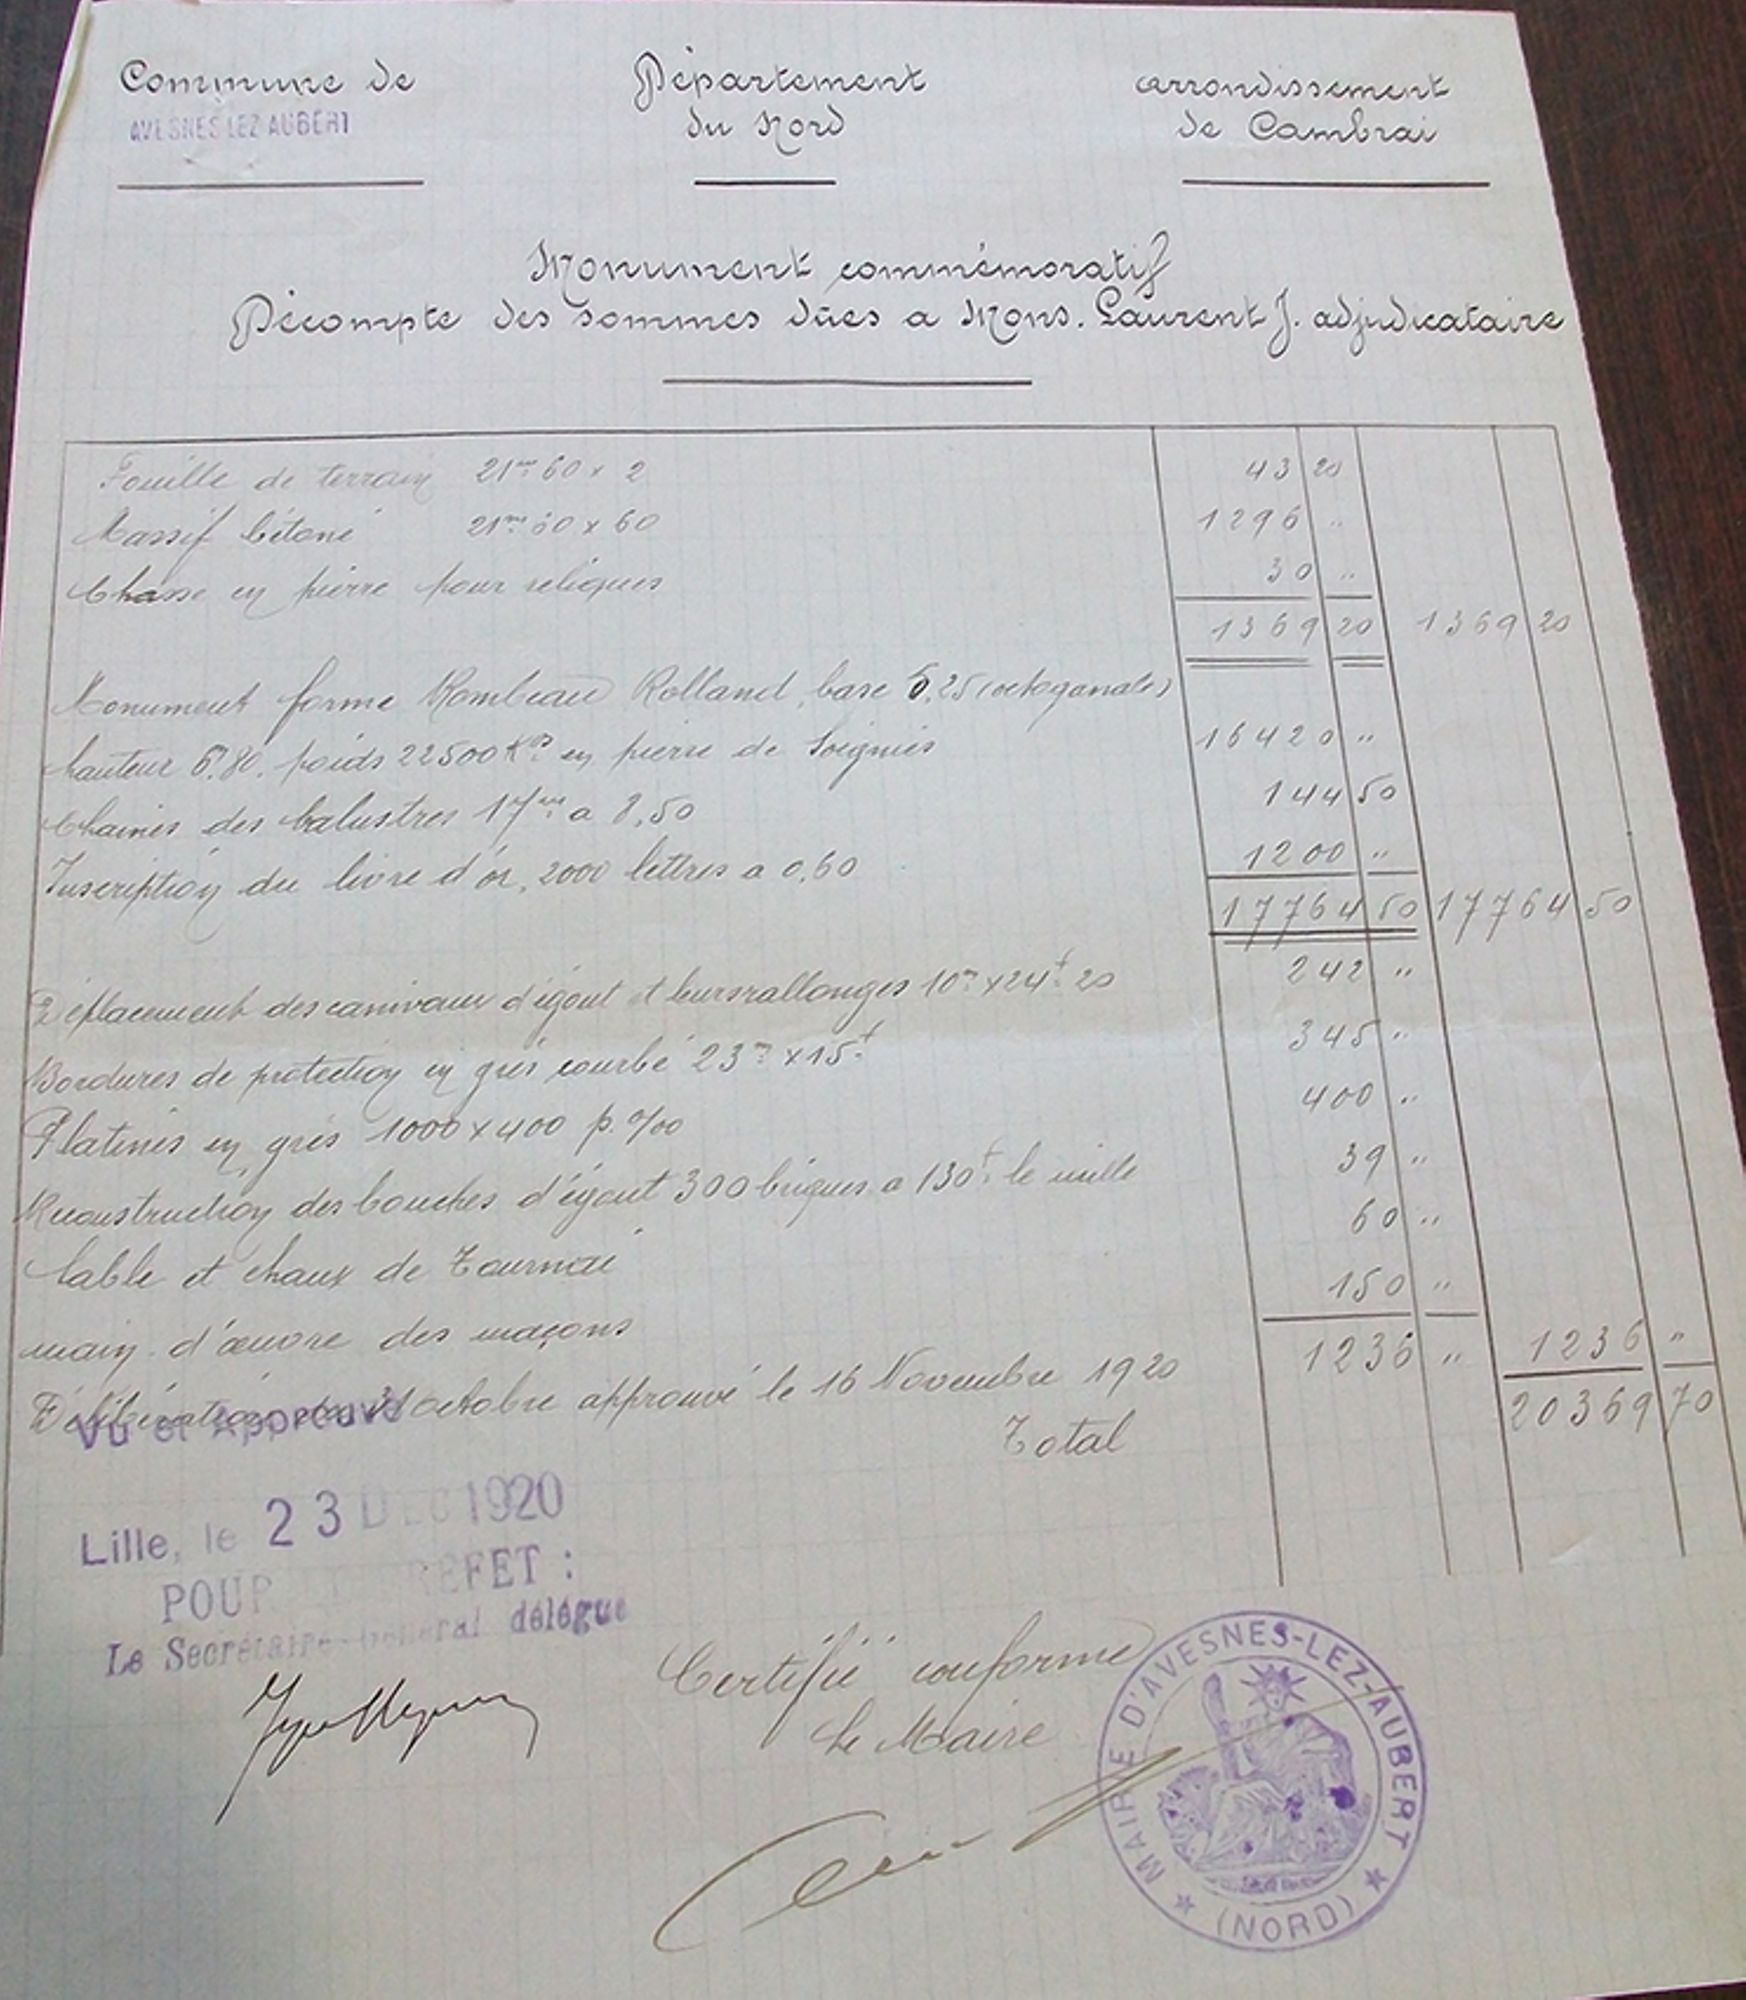 Commune de
AVESNES LEZ AUBERT
Département
du Nord
arrondissement
de Cambrai
Monument commémoratif
Décompte des sommes dûes a Mons. Laurent J. adjudicataire
Fouille de terrain 21m 60 x 2 43 20
Massif bétoné 21m 60 x 60 1296 "
Chasse en pierre pour reliques 30 "
1369 20 1369 20
Monument forme Rombeau Rolland, base 5,25 (octogonale)
hauteur 6.80. poids 22500 Kos en pierre de Soignies 16420 "
Chaines des balustres 17m a 8,50 144 50
Inscription du livre d'or, 2000 lettres a 0,60 1200 "
17764 50 17764 50
Déplacement des canivaux d'égout et leurs rallonges 10m x 24f 20 242 "
Bordures de protection en grés courbé 23m x 15f 345 "
Platines en grés 1000 x 400 p. %00 400 "
Reconstruction des bouches d'égout 300 briques a 130f le mille 39 "
Sable et chaux de Tournai 60 "
main d'œuvre des maçons 150 "
1236 " 1236 "
Délibération du 31 octobre approuvé le 16 Novembre 1920
Total 20369 70
Vu et Approuvé
Lille, le 23 DEC 1920
POUR LE PREFET :
Le Secrétaire Général délégué
Certifié conforme
Le Maire
MAIRIE D'AVESNES-LEZ-AUBERT
(NORD)